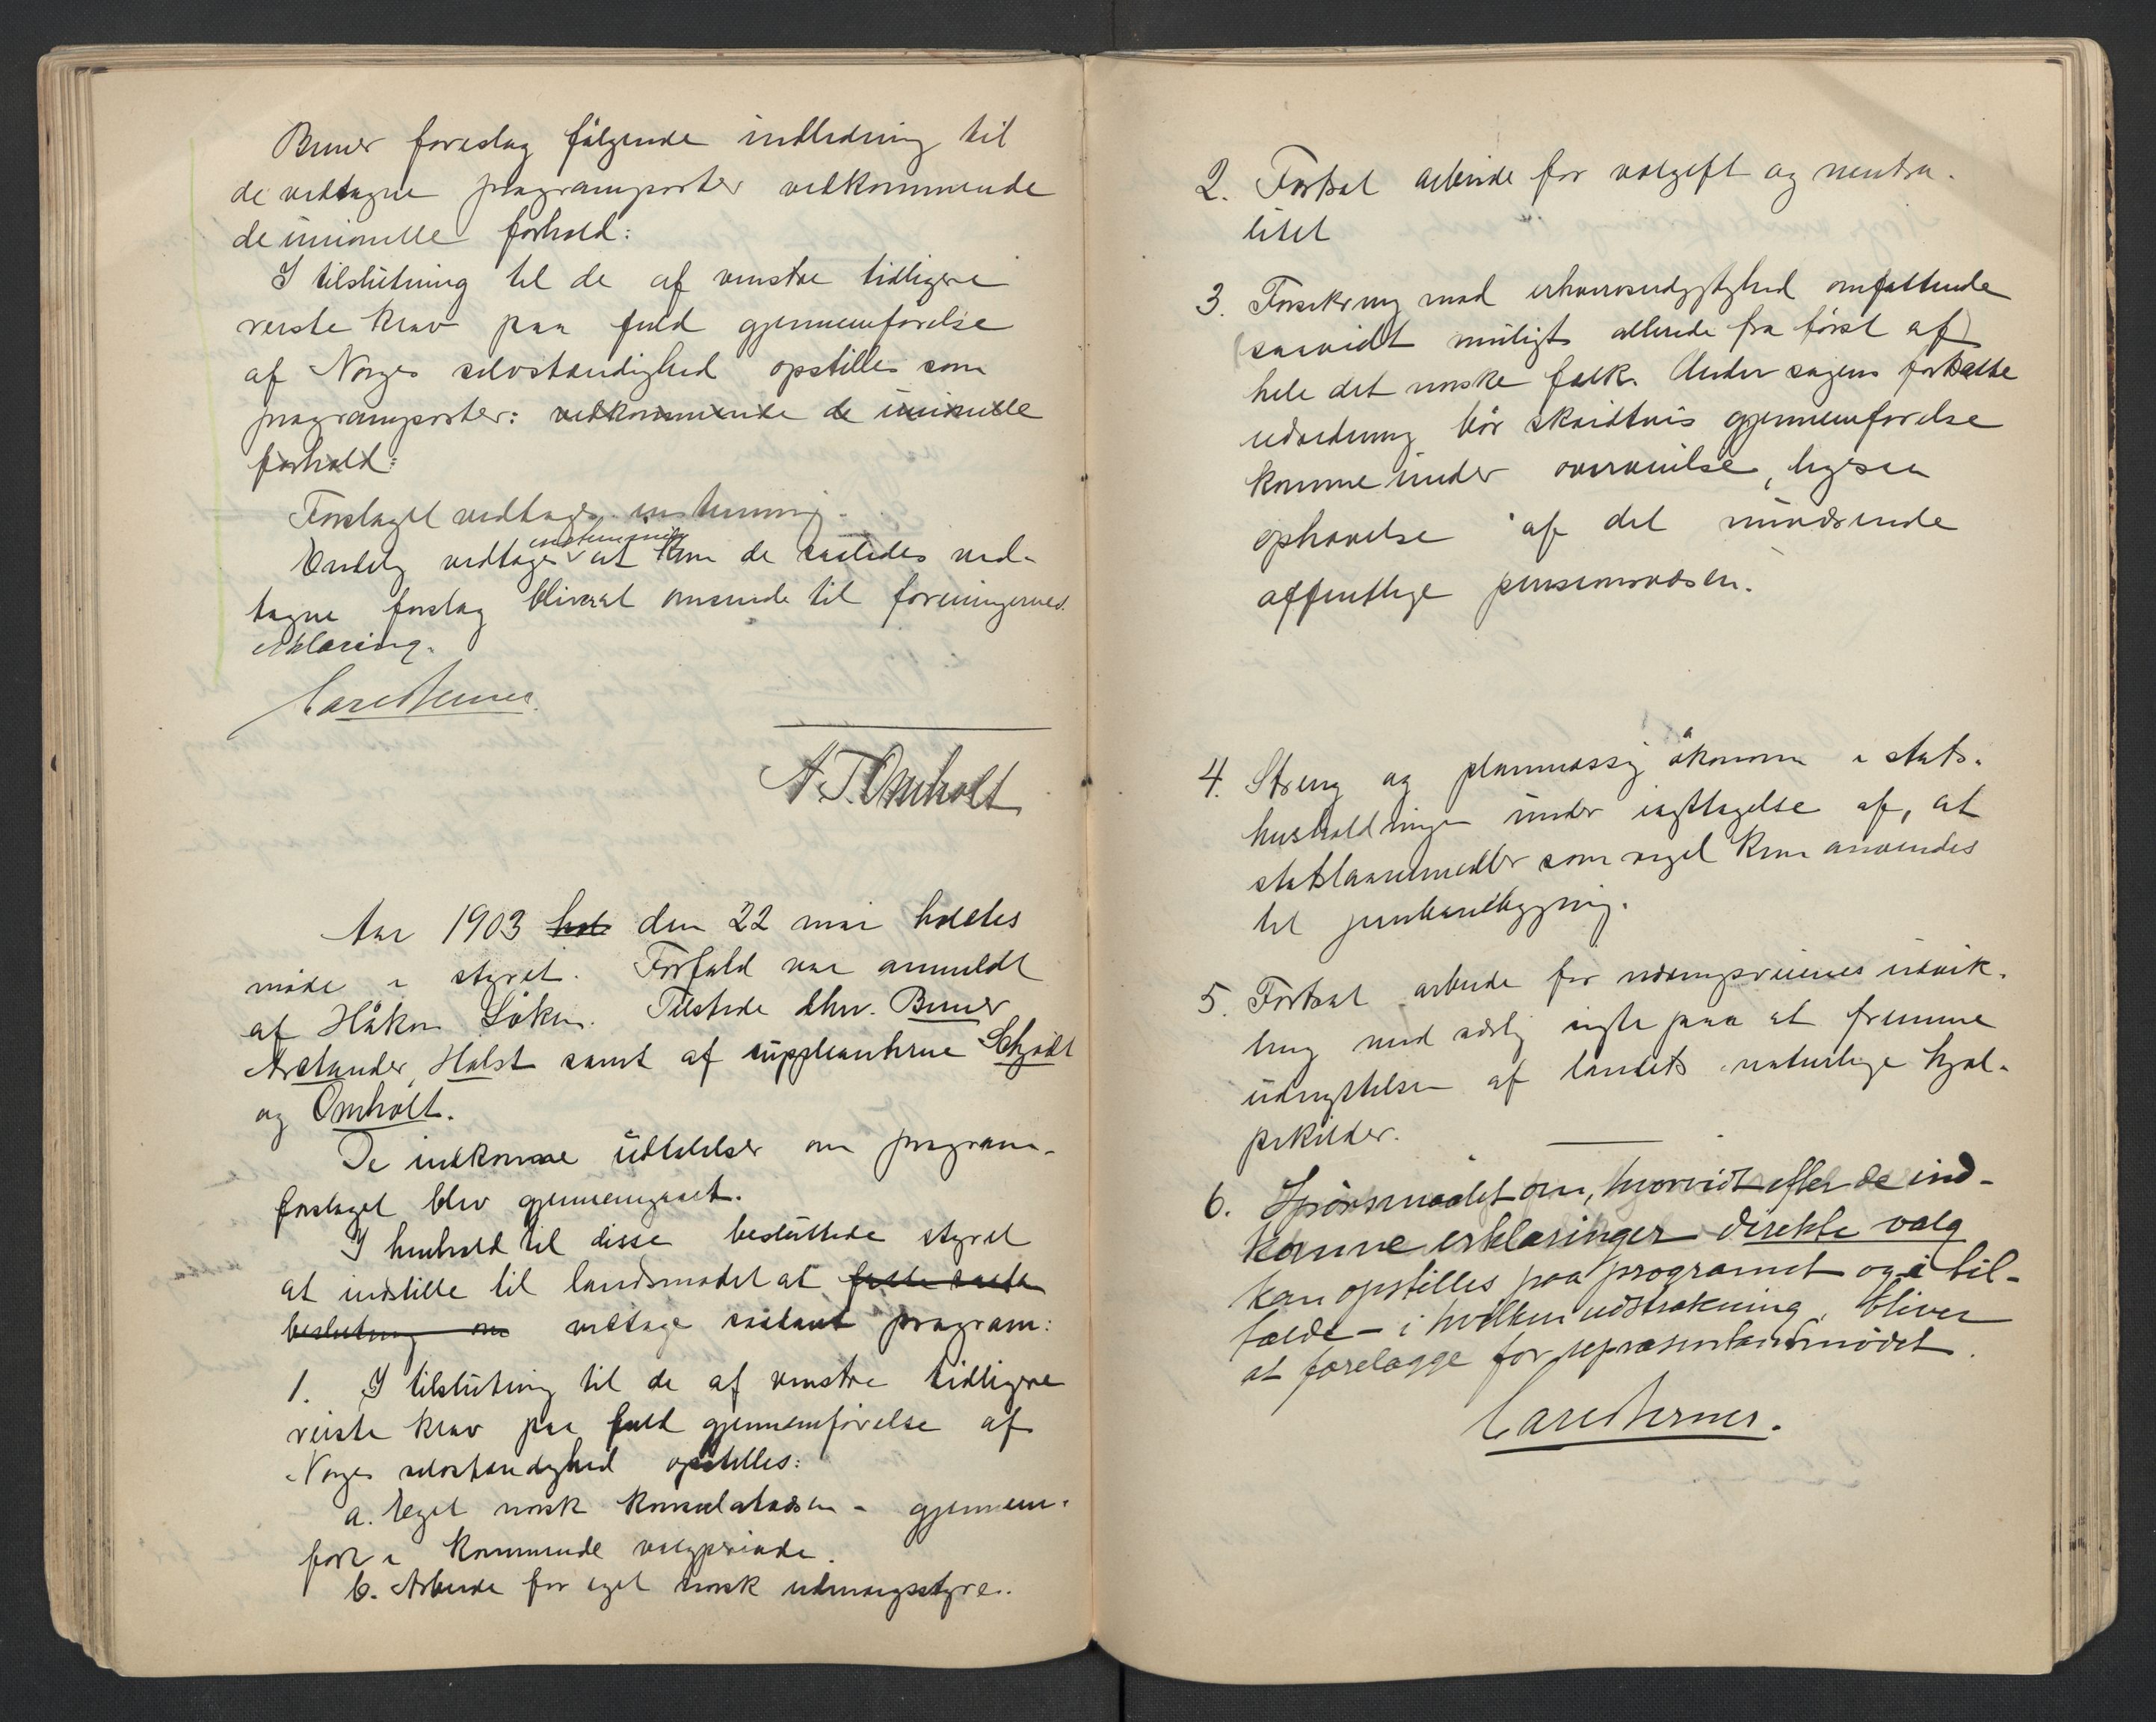 Berner foreslog følgende indledning til
de vedtagne programposter vedkommende
de unionelle forhold:
I tilslutning til de af venstre tidligere
reiste krav paa fuld gjennemførelse
af Norges selvstændighed opstilles som
programposter: vedkommende de unionelle
forhold:
Forslaget vedtages enstemmig.
Endelig vedtoges enstemmig at de saaledes ved-
tagne forslag blir at omsende til foreningernes
erklæring.
Carl Berner
A. T. Omholt
Aar 1903 hol den 22 mai holdtes
møde i styret. Forfald var anmeldt
af Håkon Løken. Tilstede dhrr. Berner
Arctander, Holst samt af suppleanterne
og Omholt.
De indkomne udtalelser om program-
forslaget blev gjennemgaaet.
I henhold til disse besluttede styret
at indstille til landsmødet at fatte saadan
beslutning om vedtage saadant program:
1. I tilslutning til de af venstre tidligere
reiste krav paa fuld gjennemførelse af
Norges selvstændighed opstilles:
a. Eget norsk konsulatvæsen - gjennem-
ført i kommende valgperiode.
b. Arbeide for eget norsk udenrigsstyre.
2. Fortsat arbeide for voldgift og neutra-
litet
3. Forsikring mod erhvervsudygtighed omfattende
(saavidt muligt allerede fra først af)
hele det norske folk. Under sagens fortsatte
udredning bør skridtvis gjennemførelse
komme under overveielse, ligesaa
ophævelse af det nuværende
offentlige pensionsvæsen.
4. Streng og planmæssig økonomi i stats-
husholdningen under iagttagelse af, at
statslaanemidler som regel kun anvendes
til jernbanebygning.
5. Fortsat arbeide for næringsveienes udvik-
ling med særlig sigte paa at fremme
udnyttelsen af landets naturlige hjæl-
pekilder.
6. Spørsmaalet om, hvorvidt efter de ind-
komne erklæringer direkte valg
kan opstilles paa programet og i til-
fælde - i hvilken udstrækning, bliver
at forelægge for repræsentantmødet.
Carl Berner.